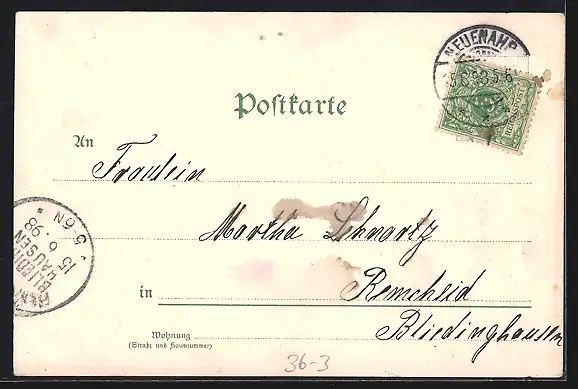 NEUENAHR
5.6.98 5-6N
Postkarte
REICHSPOST
An
Fraulein
Martha Schwartz
in Remscheid
Bliedinghausen
Wohnung
(Straße und Hausnummer)
BLIEDING
HAUSEN
15
6
98
*5-6N*
36-3